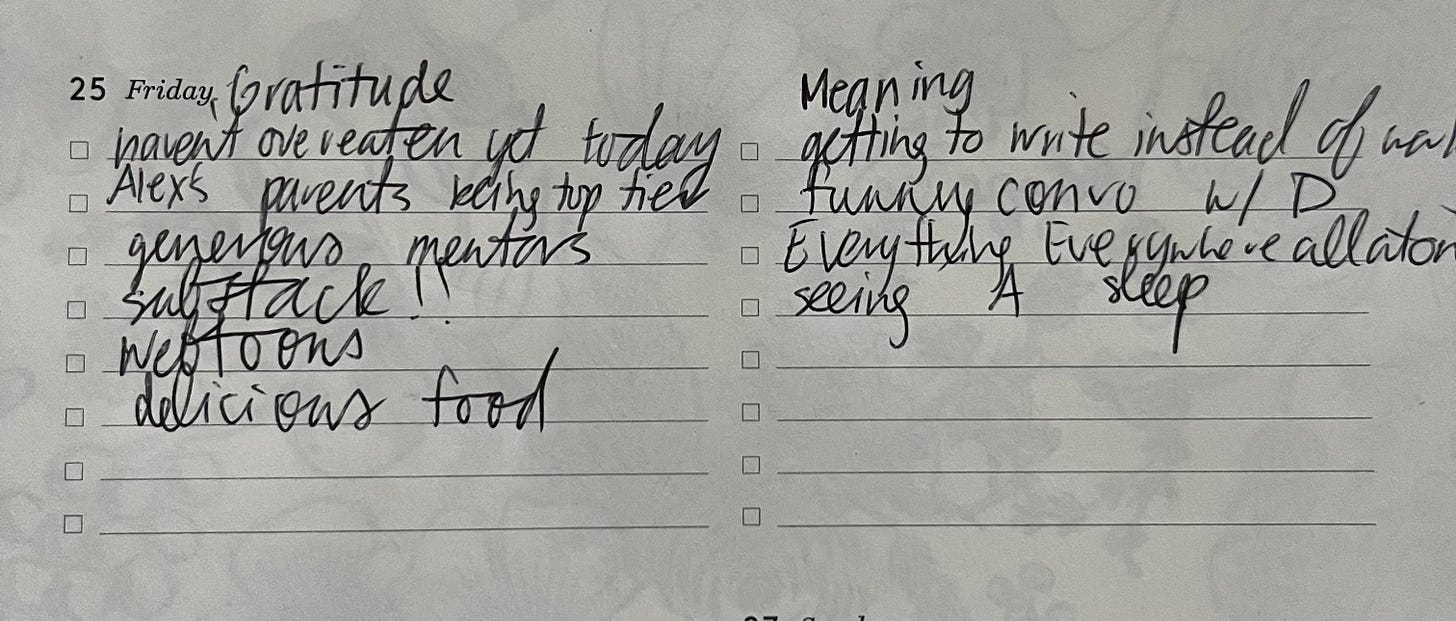 25 Friday, Gratitude
havent overeaten yet today
Alex's parents being top tier
generous mentors
substack!!
webtoons
delicious food
Meaning
getting to write instead of
funny convo w/ D
Everything Everywhere all at on
seeing A sleep